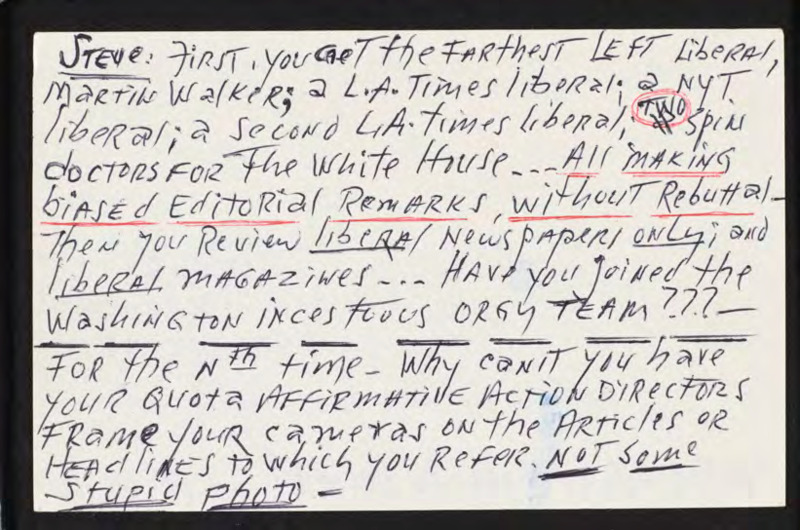 STEVE: FIRST, YOU GET the FARTHEST LEFT LibERAL,
MARTIN WalkER; a L.A. Times liberal; a NYT
liberal; a second L.A. times liberal; TWO SPIN
doctors FOR The White House... All MAKING
biASEd EditoRial REMARKS, without Rebuttal-
Then you Review liberal Newspapers only; and
liberal MAGAZINES... HAVE you joined the
WAshiNGTON incestuous ORGY TEAM???-
FOR the Nth time- Why can't you have
YOUR Quota AFFIRMATIVE ACTION DIRECTORS
FRAME YOUR cameras ON the ARTICLES OR
HEAdliNES to which you REFER. NOT Some
Stupid photo -